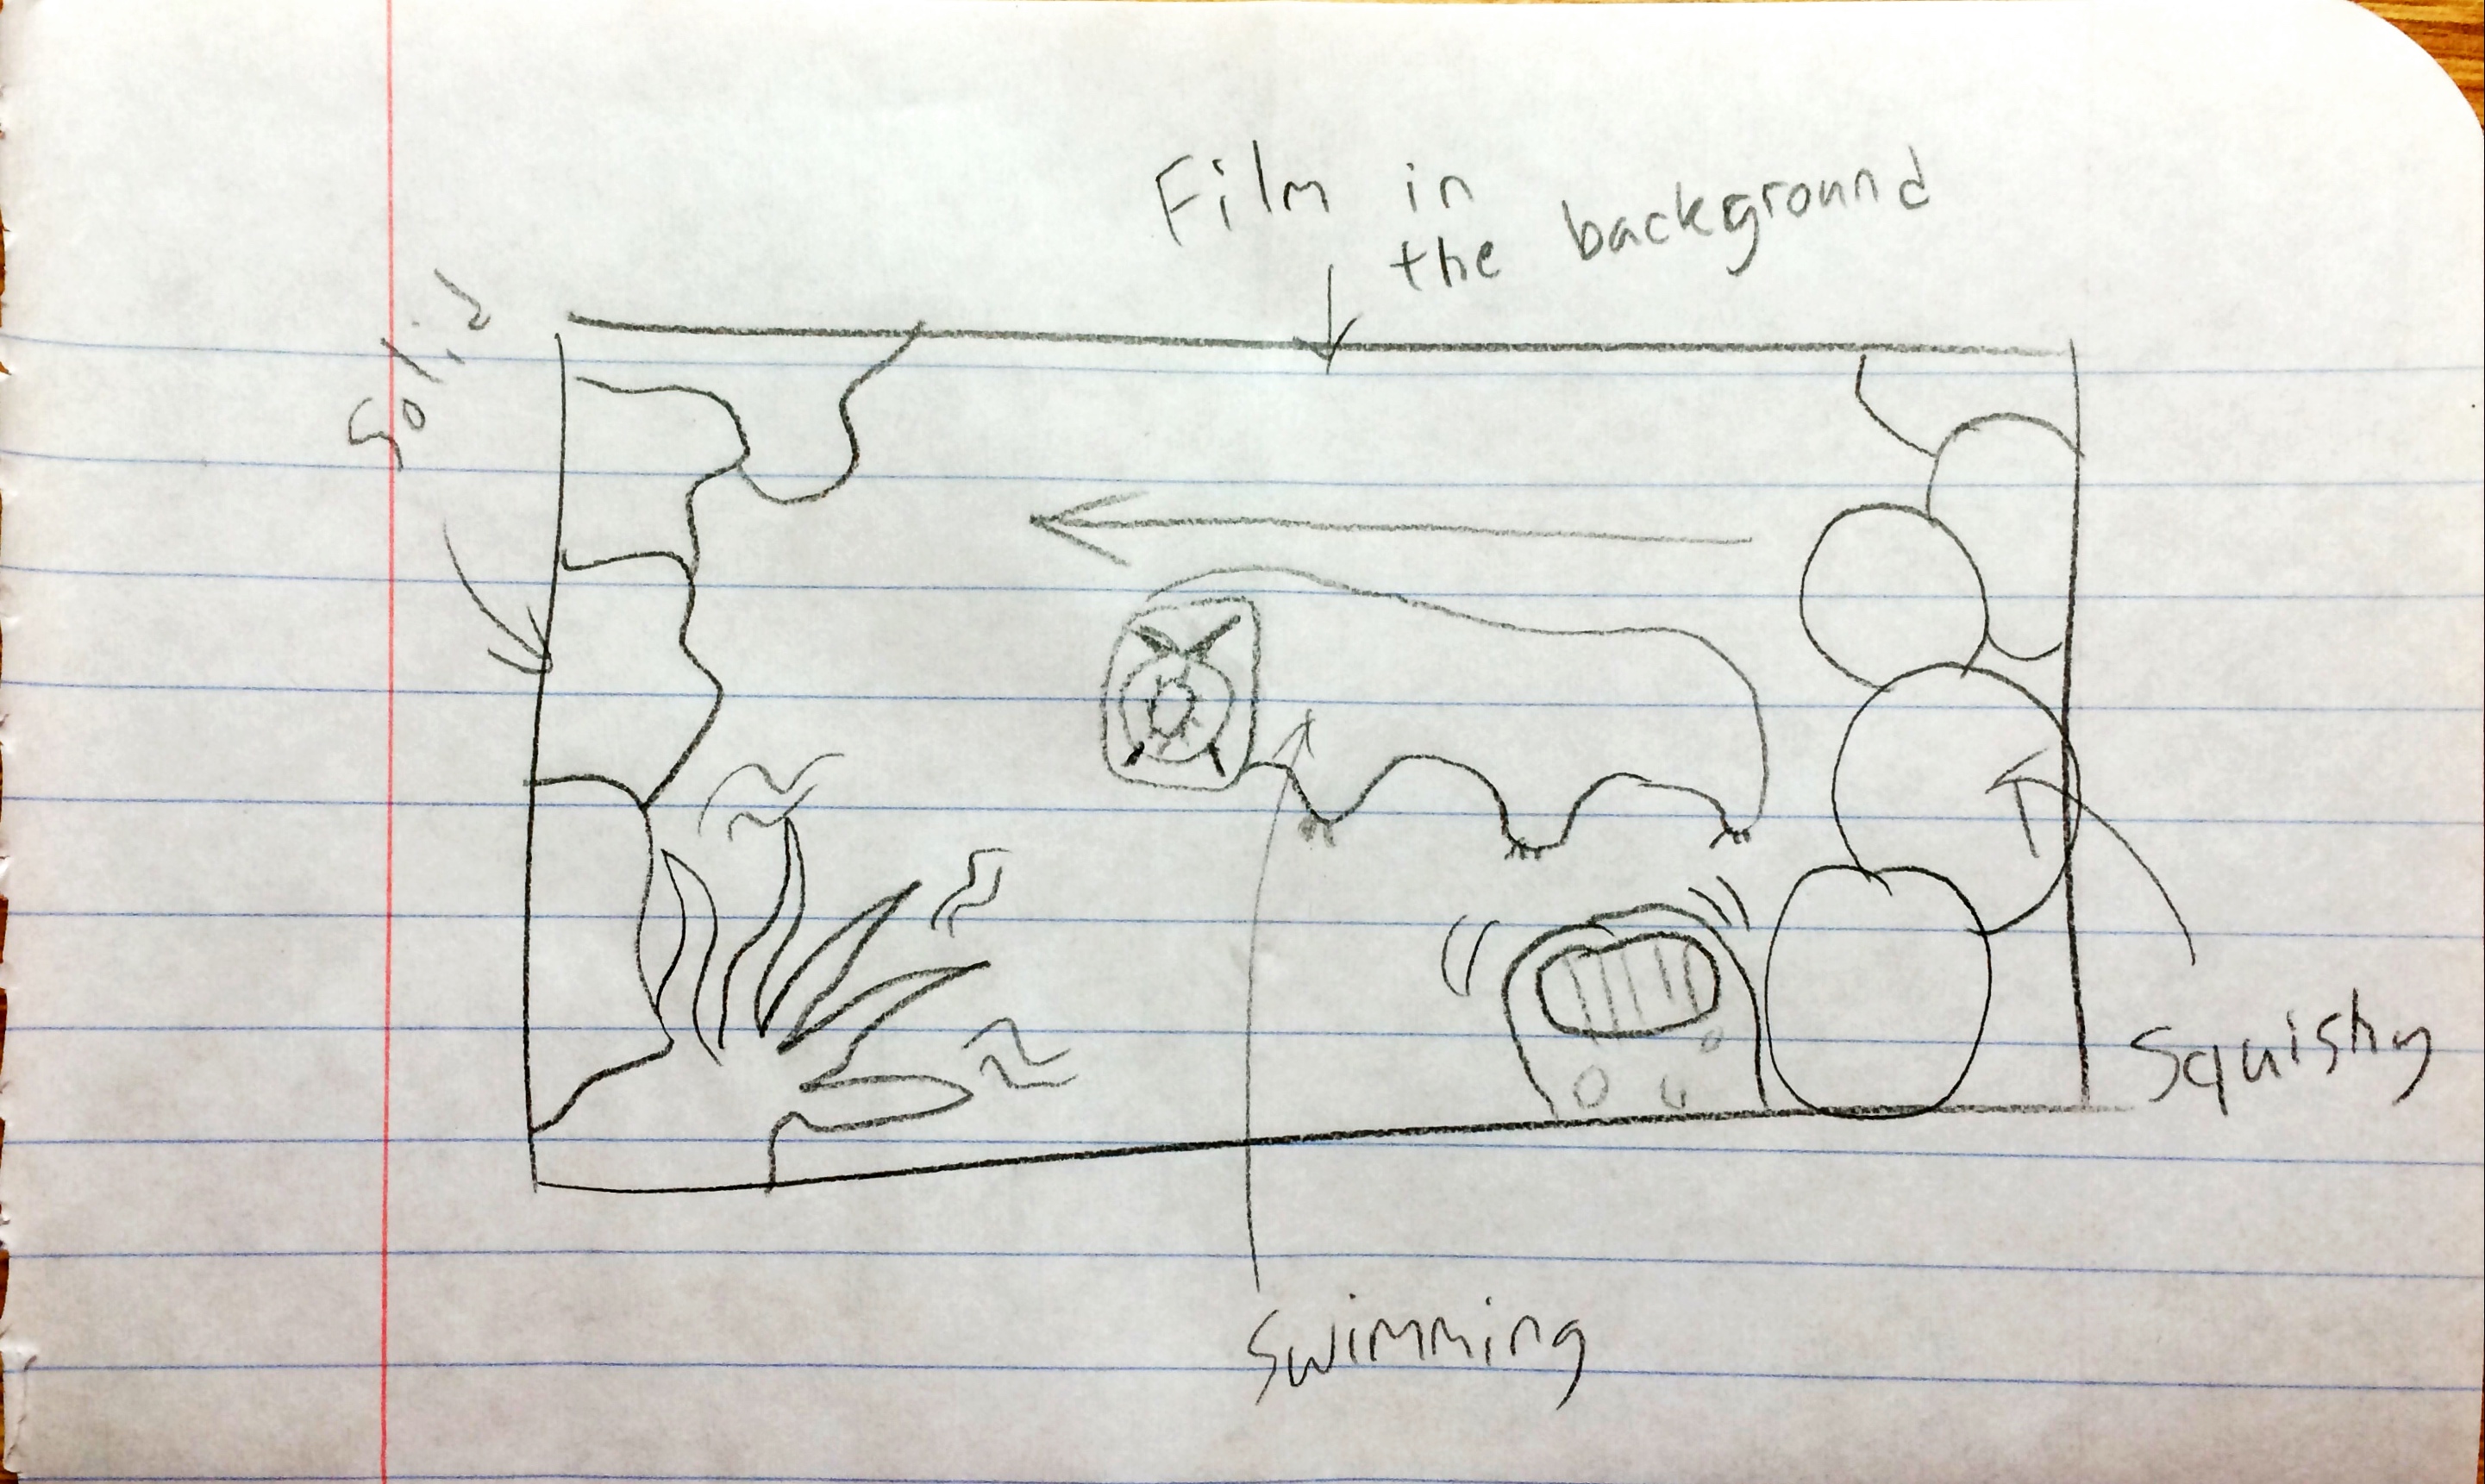 Film in
the background
Solid
Squishy
Swimming